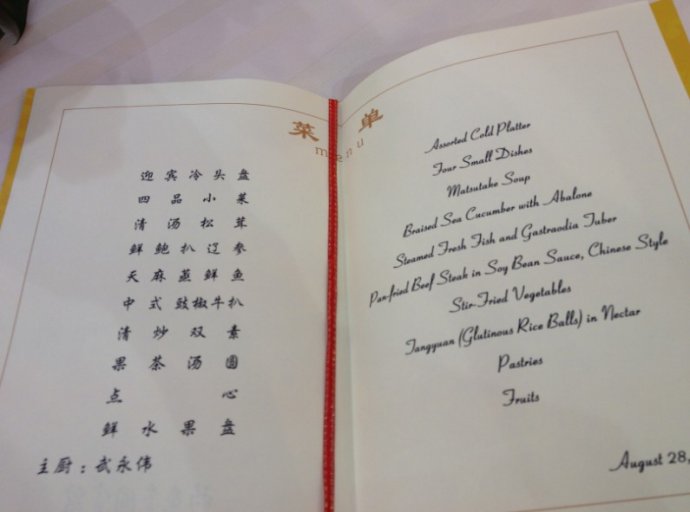 菜单
menu
迎宾冷头盘
四品小菜
清汤松茸
鲜鲍扒辽参
天麻蒸鲜鱼
中式豉椒牛扒
清炒双素
果茶汤圆
点心
鲜水果盘
主厨：武永伟
Assorted Cold Platter
Four Small Dishes
Matsutake Soup
Braised Sea Cucumber with Abalone
Steamed Fresh Fish and Gastraodia Tuber
Pan-fried Beef Steak in Soy Bean Sauce, Chinese Style
Stir-Fried Vegetables
Tangyuan (Glutinous Rice Balls) in Nectar
Pastries
Fruits
August 28,